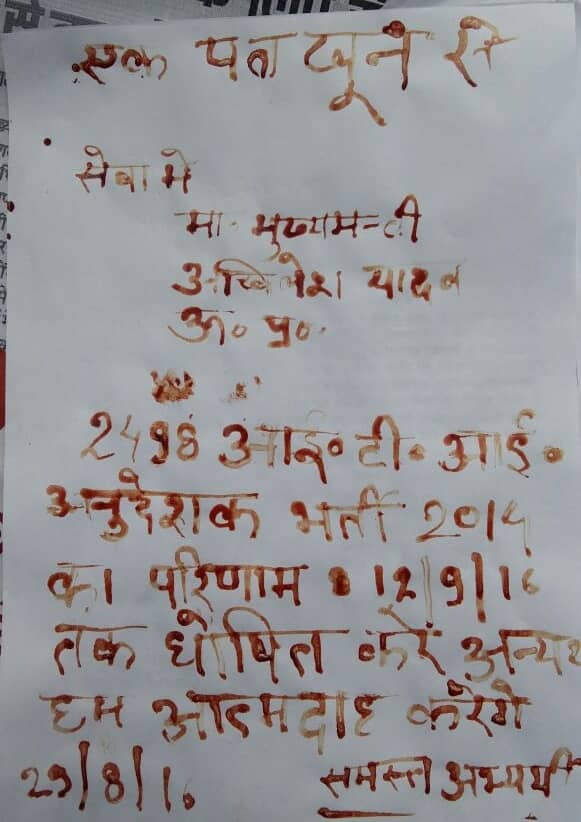 एक पत्र खून से
सेवा में
मा. मुख्यमन्त्री
अखिलेश यादव
उ० प्र०
2498 आई० टी० आई०
अनुदेशक भर्ती 2014
का परिणाम 12/9/16
तक घोषित करें अन्यथा
हम आत्मदाह करेंगे
29/8/16.
समस्त अभ्यर्थी